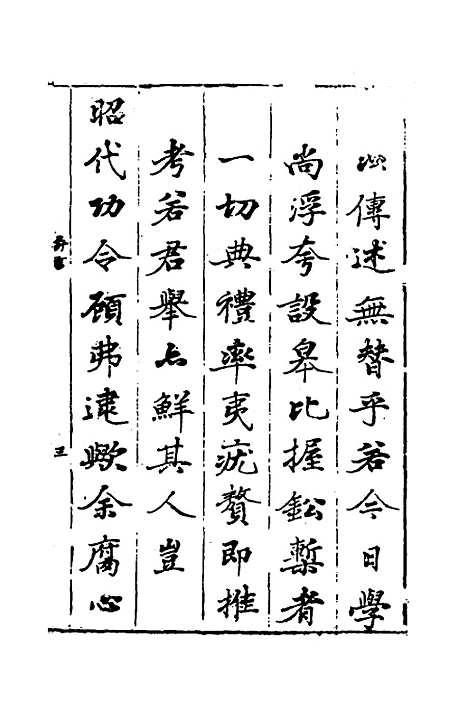 以傳述無替乎若今日學
尚浮夸設皋比握鉛槧者
一切典禮率夷疣贅即推
考若君舉亦鮮其人豈
昭代功令顧弗逮歟余腐心
弁言
三